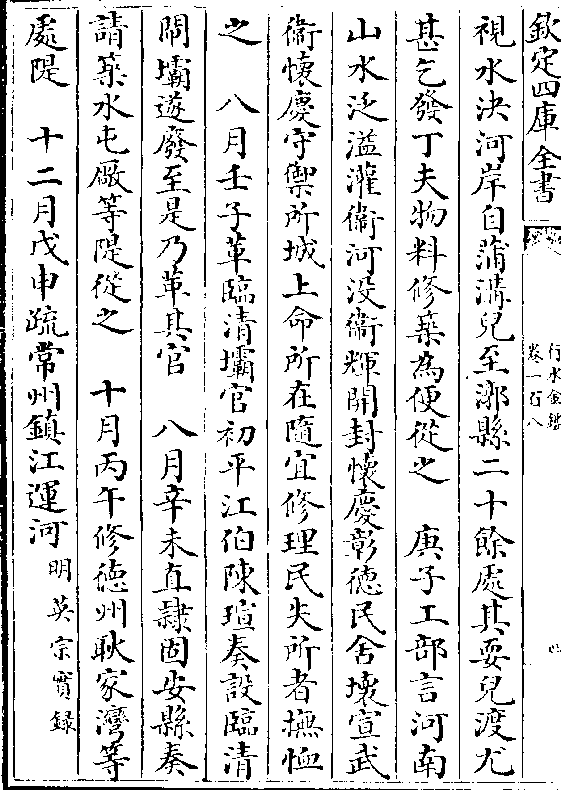 欽定四庫全書
行水金鑑
卷一百八
視水決河岸自蒲溝兒至漷縣二十餘處其耍兒渡尤
甚乞發丁夫物料修築為便從之　庚子工部言河南
山水泛溢灌衞河没衞輝開封懷慶彰德民舍壞宣武
衞懷慶守禦所城上命所在隨宜修理民失所者撫恤
之　八月壬子革臨清壩官初平江伯陳瑄奏設臨清
閘壩遂廢至是乃革其官　八月辛未直隷固安縣奏
請築水屯厰等隄從之　十月丙午修德州耿家灣等
處隄　十二月戊申疏常州鎮江運河明英宗實録